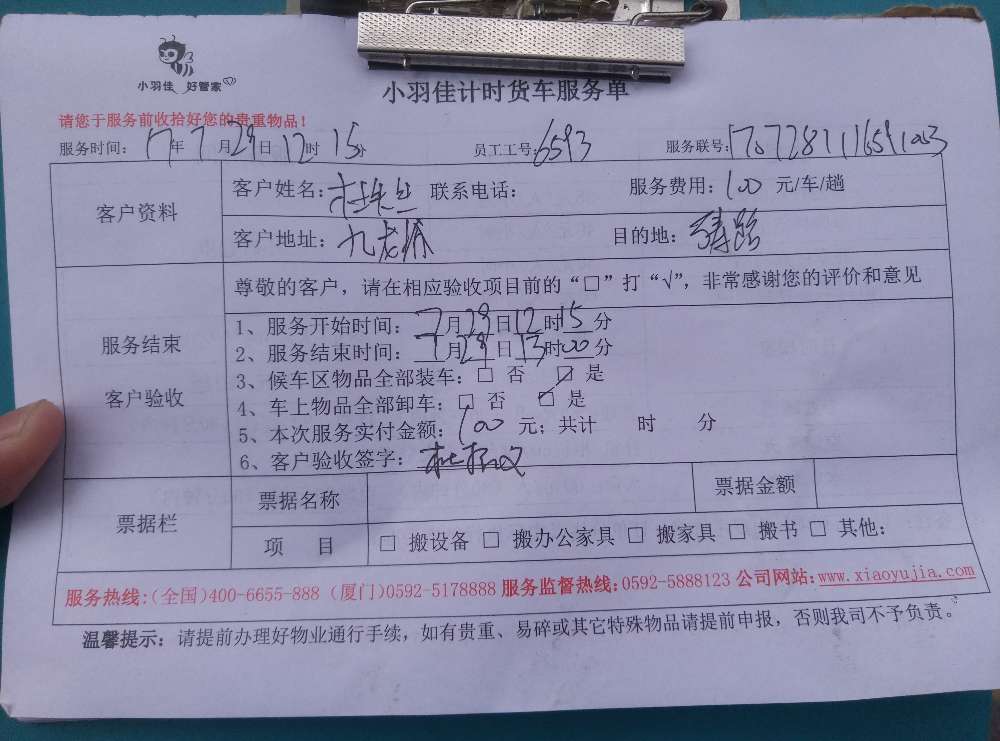 小羽佳 好管家
小羽佳计时货车服务单
请您于服务前收拾好您的贵重物品！
服务时间：17年7月29日12时15分 员工工号：6593 服务联号：
客户资料
客户姓名： 联系电话： 服务费用：100元/车/趟
客户地址：九龙城 目的地：
服务结束
客户验收
尊敬的客户，请在相应验收项目前的“□”打“√”，非常感谢您的评价和意见
1、服务开始时间：7月29日12时15分
2、服务结束时间：7月29日13时00分
3、候车区物品全部装车：□ 否 ☑ 是
4、车上物品全部卸车：□ 否 ☑ 是
5、本次服务实付金额：100元；共计 时 分
6、客户验收签字：
票据栏
票据名称 票据金额
项 目 □ 搬设备 □ 搬办公家具 □ 搬家具 □ 搬书 □ 其他：
服务热线:(全国)400-6655-888 (厦门)0592-5178888 服务监督热线:0592-5888123 公司网站:www.xiaoyujia.com
温馨提示：请提前办理好物业通行手续，如有贵重、易碎或其它特殊物品请提前申报，否则我司不予负责。